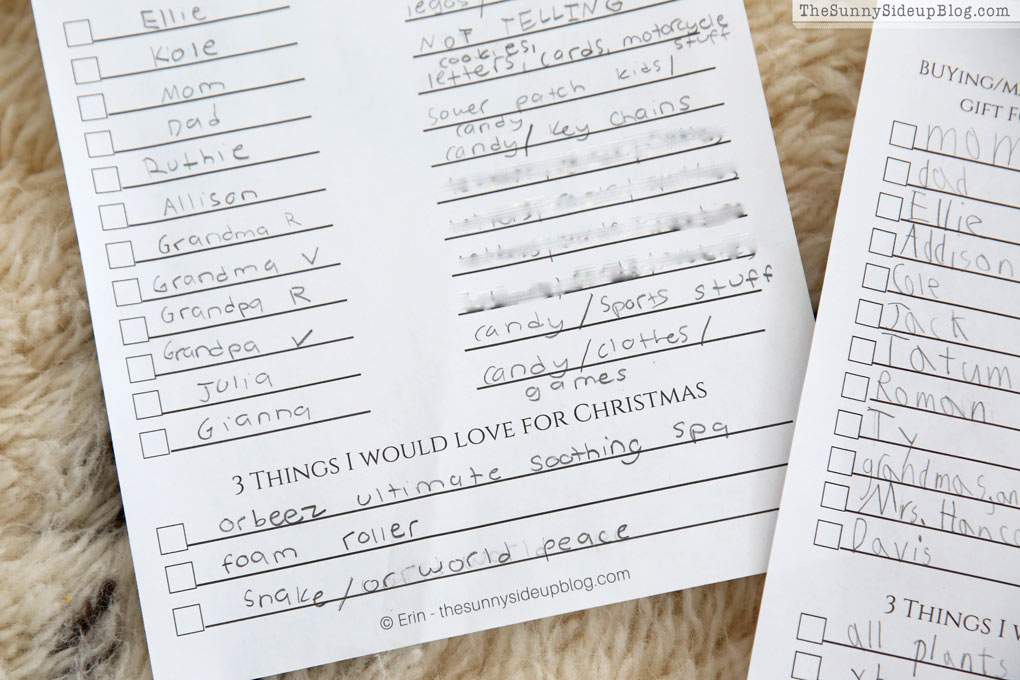 TheSunnySideupBlog.com
Ellie
legos/
Kole
NOT TELLING
cookies,
Mom
letters, cards, motorcycle
stuff
Dad
sower patch kids/
candy
Ruthie
candy/ key chains
Allison
Grandma R
Grandma V
Grandpa R
Grandpa V
candy/sports stuff
Julia
candy/clothes/
games
Gianna
3 Things I would love for Christmas
orbeez ultimate soothing spa
foam roller
snake/or world peace
© Erin - thesunnysideupblog.com
BUYING/MA
GIFT FO
mom
dad
Ellie
Addison
Cole
Jack
Tatum
Roman
Ty
grandmas, an
Mrs. Hanco
Davis
3 Things I w
all plants